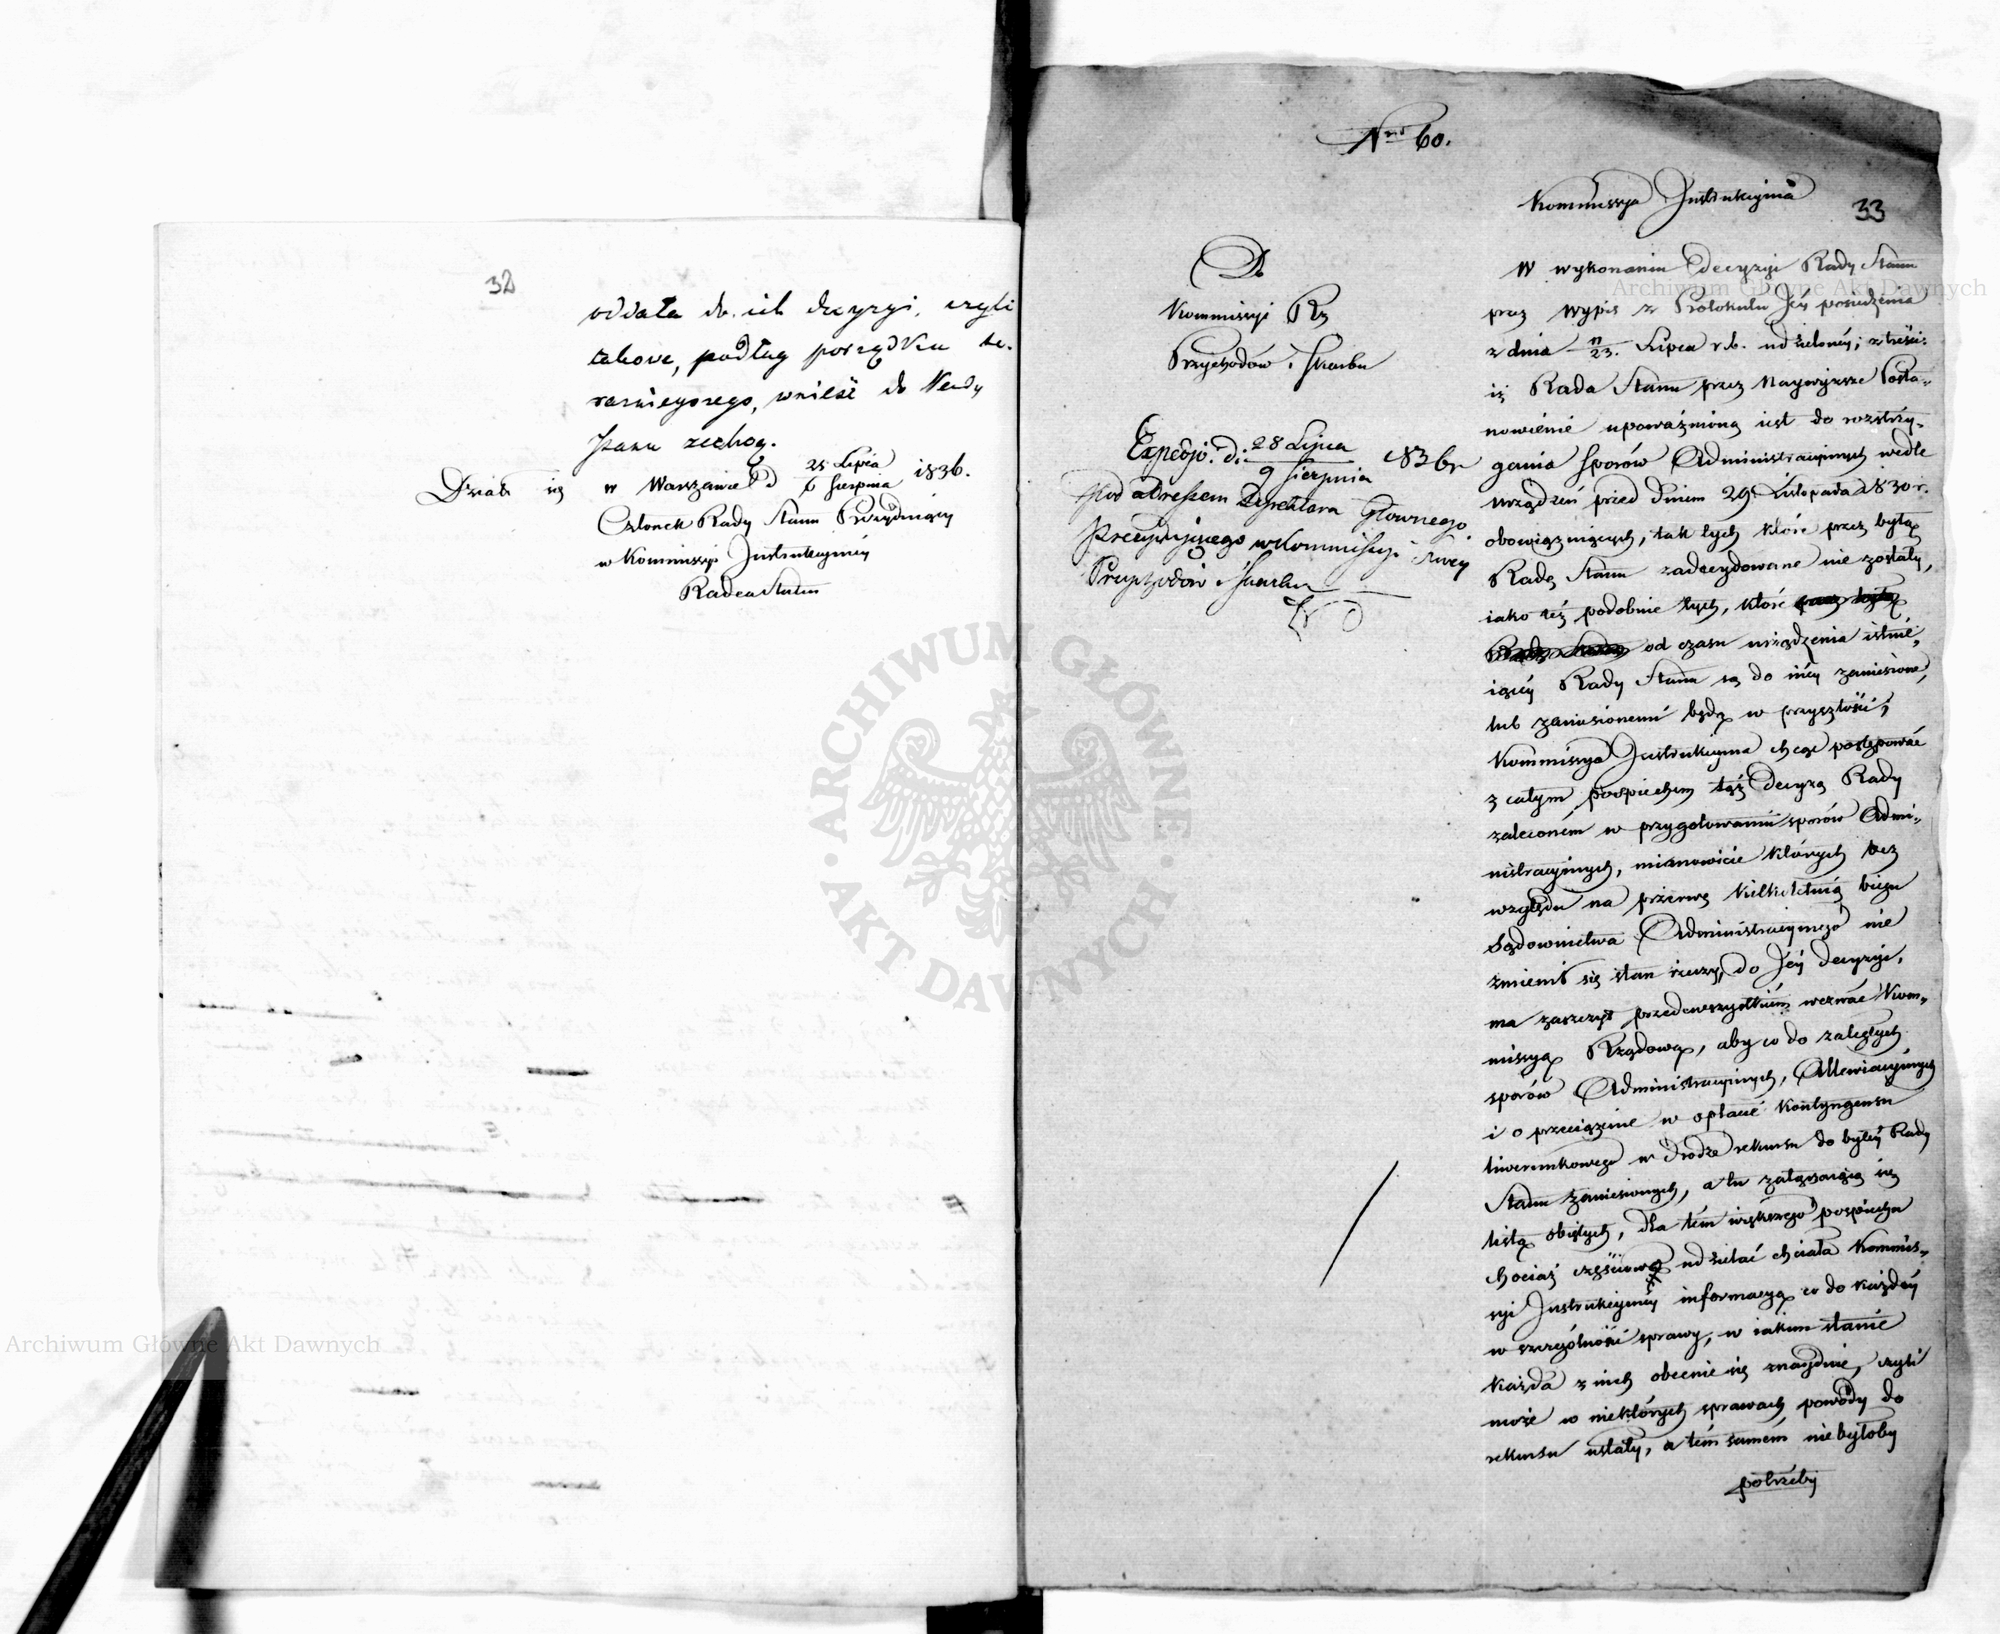 32
oddała do ich decyzyi, czyli
takowe, podług porządku te-
raznieyszego, wnieść do Rady
Stanu zechcą.
Działo się w Warszawie d 25 Lipca / 6 Sierpnia 1836.
Członek Rady Stanu Prezyduiący
w Kommissyi Instrukcyinéy
Radca Stanu
Nro 60.
33
Kommissya Instrukcyina
Do
Kommissyi Rz
Przychodów i Skarbu
Expedjo. d: 28 Lipca / 9 Sierpnia 1836 r
Pod adressem Dyrektora Głownego
Prezydującego w Kommissyi Rzwey
Przychodów i Skarbu
W wykonaniu Decyzyi Rady Stanu
przez Wypis z Protokułu Jéy posiedzenia
z dnia 11/23. Lipca r.b. udzielonéy; z treści:
iż Rada Stanu przez Naywyższe Posta-
nowienie upoważnioną iest do rozstrzy-
gania sporów Administracyinych wedle
urządzeń przed dniem 29. Listopada 1830 r.
obowiązuiących, tak tych które przez byłą
Radę Stanu zadecydowane nie zostały,
iako téż podobnie tych, które
od czasu urządzenia istnie-
iącéy Rady Stanu są do niéy zaniesione,
lub zaniesionemi będą w przyszłości,
Kommissya Instrukcyina chcąc postępować
z całym pospiechem tąż Decyzą Rady
zaleconém w przygotowaniu sporów Admi-
nistracyinych, mianowicie których bez
względu na przerwę kilkoletnią biegu
Sądownictwa Administracyinego nie
zmienił się stan rzeczy, do Jéy decyzyi,
ma zaszczyt przedewszystkiém wezwać Kom-
missyą Rządową, aby co do zaległych
sporów Administracyinych, Allewiacyinych
i o przeciążenie w opłacie kontyngensu
liwerunkowego w drodze rekursu do byłéy Rady
Stanu zaniesionych, a tu załączaiącą się
listą obiętych, dla tém większego pospiechu
chociaż częściową udzielać chciała Kommis-
syi Instrukcyinéy informacyą co do każdéy
w szczególności sprawy, w iakim stanie
każda z nich obecnie się znayduie, czyli
może w niektórych sprawach powody do
rekursu ustały, a tém samém nie byłoby
potrzeby
ARCHIWUM GŁÓWNE · AKT DAWNYCH ·
Archiwum Główne Akt Dawnych
Archiwum Główne Akt Dawnych